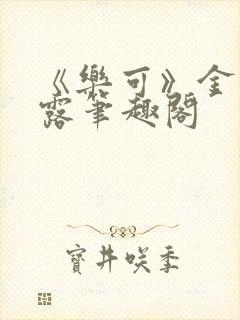 《樂可》金
露筆趣閣
寶井咲季